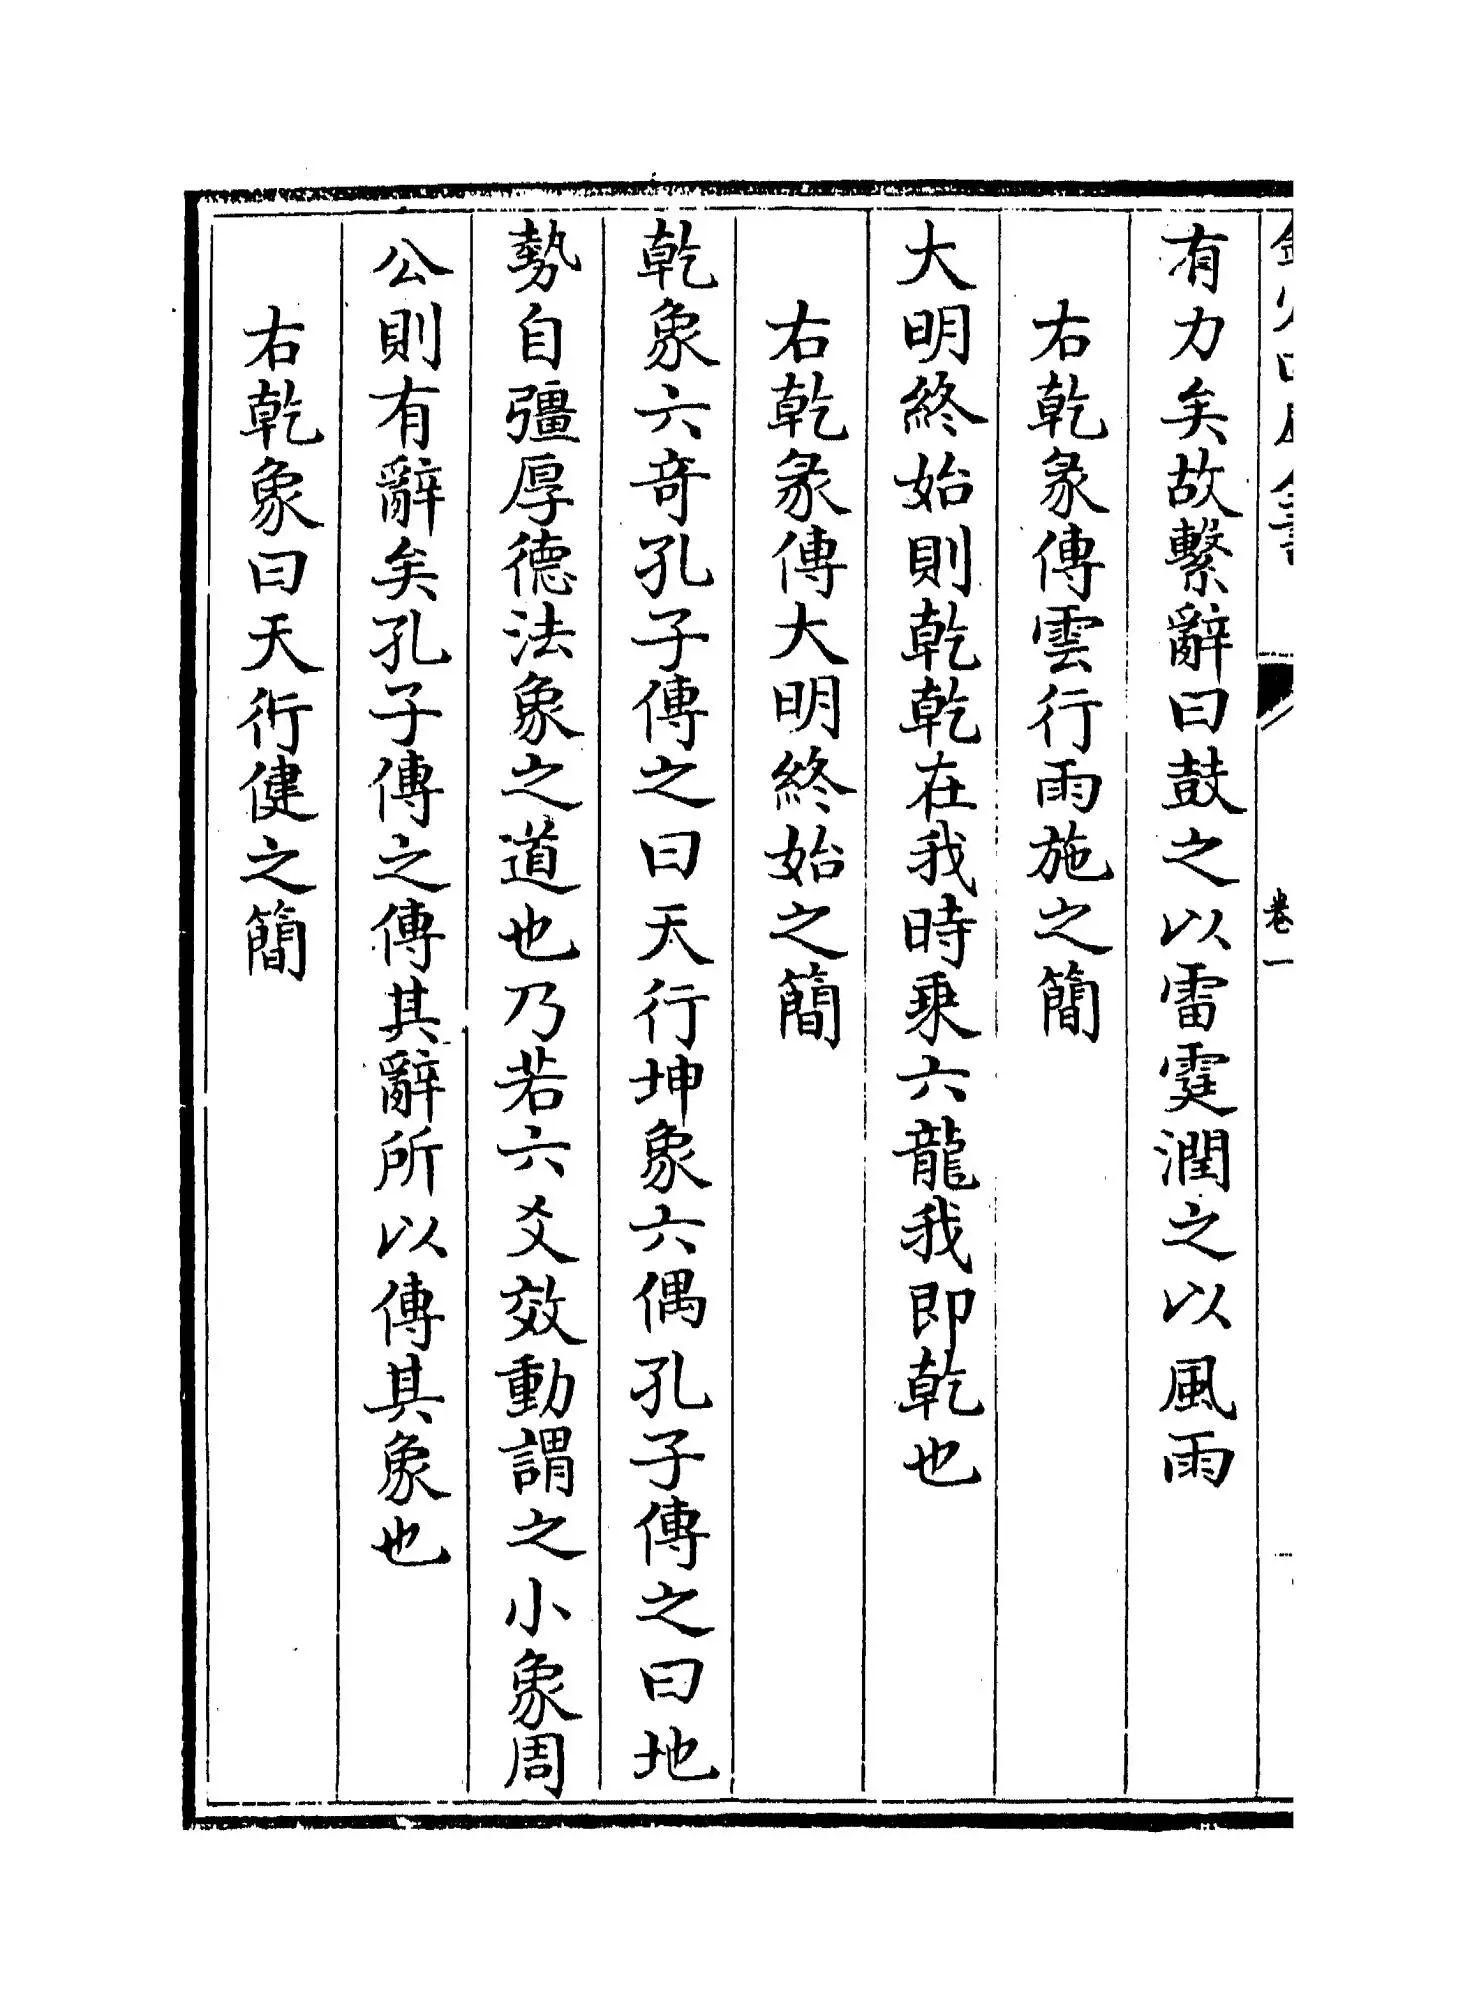 卷一
有力矣故繫辭曰鼓之以雷霆潤之以風雨
右乾彖傳雲行雨施之簡
大明終始則乾乾在我時乘六龍我即乾也
右乾彖傳大明終始之簡
乾象六奇孔子傳之曰天行坤象六偶孔子傳之曰地
勢自彊厚德法象之道也乃若六爻效動謂之小象周
公則有辭矣孔子傳之傳其辭所以傳其象也
右乾象曰天行健之簡